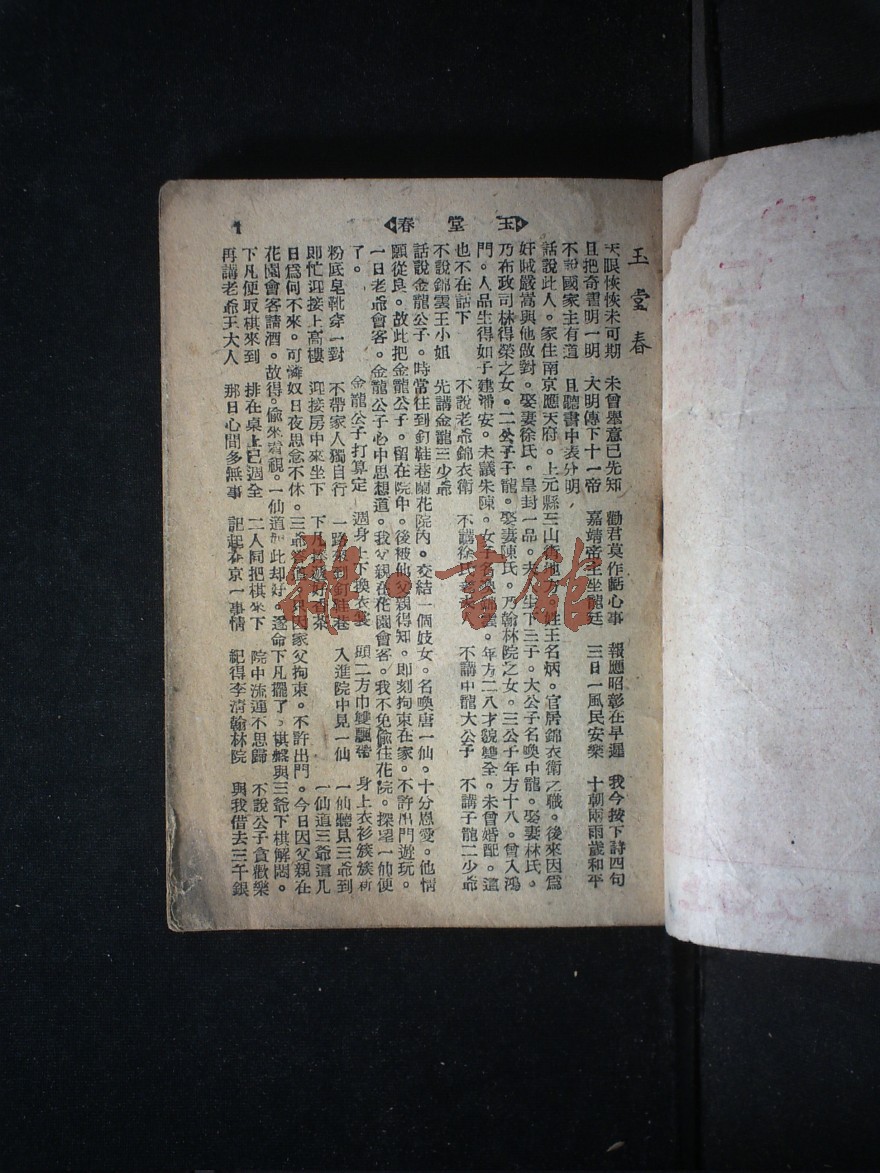 玉堂春
1
玉堂春
天眼恢恢未可期 未曾舉意已先知 勸君莫作虧心事 報應昭彰在早遲 我今按下詩四句
且把奇書明一明 大明傳下十一帝 嘉靖帝主坐龍廷 三日一風民安樂 十朝兩雨歲和平
不說國家主有道 且聽書中表分明
話說此人。家住南京應天府。上元縣三山街地方。姓王名炳。官居錦衣衛之職。後來因爲
奸賊嚴嵩與他做對。娶妻徐氏。皇封一品。夫人生下三子。大公子名喚中龍。娶妻林氏。
乃布政司林得榮之女。二公子子龍。娶妻陳氏。乃翰林院之女。三公子年方十八。曾入鴻
門。人品生得如子建潘安。未議朱陳。女子名喚錦雲。年方二八才貌雙全。未曾婚配。這
也不在話下 不說老爺錦衣衛 不講徐氏老夫 不講中龍大公子 不講子龍二少爺
不說錦雲王小姐 先講金龍三少爺
話說金龍公子。時常往到釘鞋巷蘭花院內。交結一個妓女。名喚唐一仙。十分恩愛。他情
願從良。故此把金龍公子。留在院中。後被他父親得知。即刻拘束在家。不許出門遊玩。
一日老爺會客。金龍公子心中思想道。我父親在花園會客。我不免偷往花院。探望一仙便
了。 金龍公子打算定 週身上下換衣裳 頭二方巾雙飄帶 身上衣衫簇簇新
粉底皂靴穿一對 不帶家人獨自行 一路來到釘鞋巷 入進院中見一仙 一仙聽見三爺到
即忙迎接上高樓 迎接房中來坐下 下凡 好香茶 一仙道三爺這几
日爲何不來。可憐奴日夜思念不休。三爺 道 只因家父拘束。不許出門。今日因父親在
花園會客請酒。故得。偷來看視。一仙道如此却好。遂命下凡擺了。棋盤與三爺下棋解悶。
下凡便取棋來到 排在桌上已週全 二人同把棋來下 院中流連不思歸 不說公子貪歡樂
再講老爺王大人 那日心間多無事 記起在京一事情 紀得李清翰林院 與我借去三千銀
雜·書館